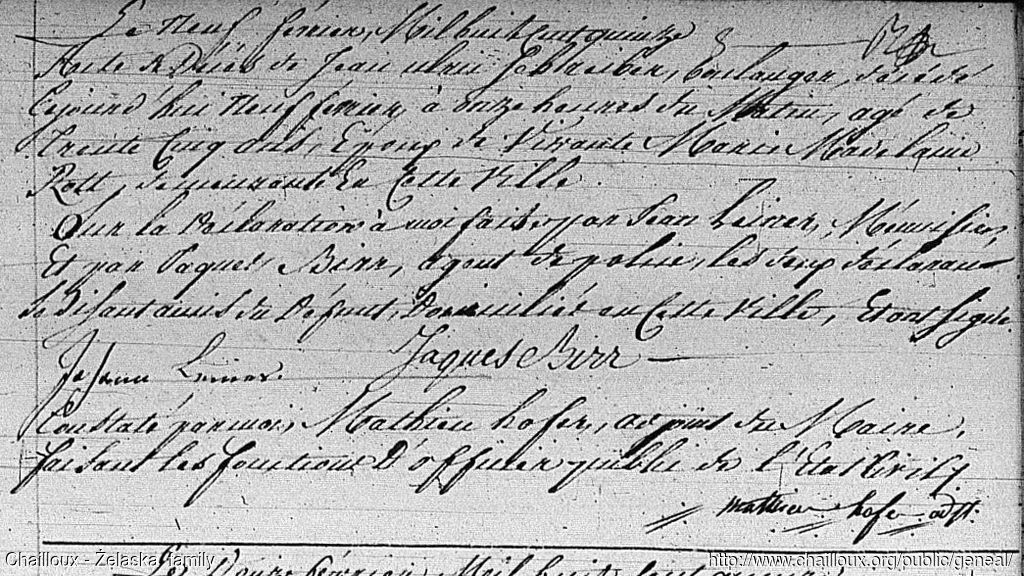 Le Neuf février, Mil huit Cent quinze
Acte de Décès de Jean Schlreiber, Boulanger, décédé
Cejourd'hui Neuf février, à onze heures du Matin, agé de
Trente Cinq ans, Epoux de Vivante Marie Madelaine
Rott, demeurante En Cette Ville.
Sur la Déclaration à moi faite par Jean Leiner, Menuisier,
Et par Jaques Birr, agent de police, les deux déclarans
se Disant amis du Défunt, Domicilié en Cette Ville, Et ont signé.
Johann Leiner. Jaques Birr
Constaté par moi, Mathieu hofer, adjoint du Maire,
faisant les fonctions D'officier public de l'Etat Civil
mathieu hofer adjt.
Le Douze février, Mil huit Cent quinze
Chailloux - Żelaska family http://www.chailloux.org/public/geneal/